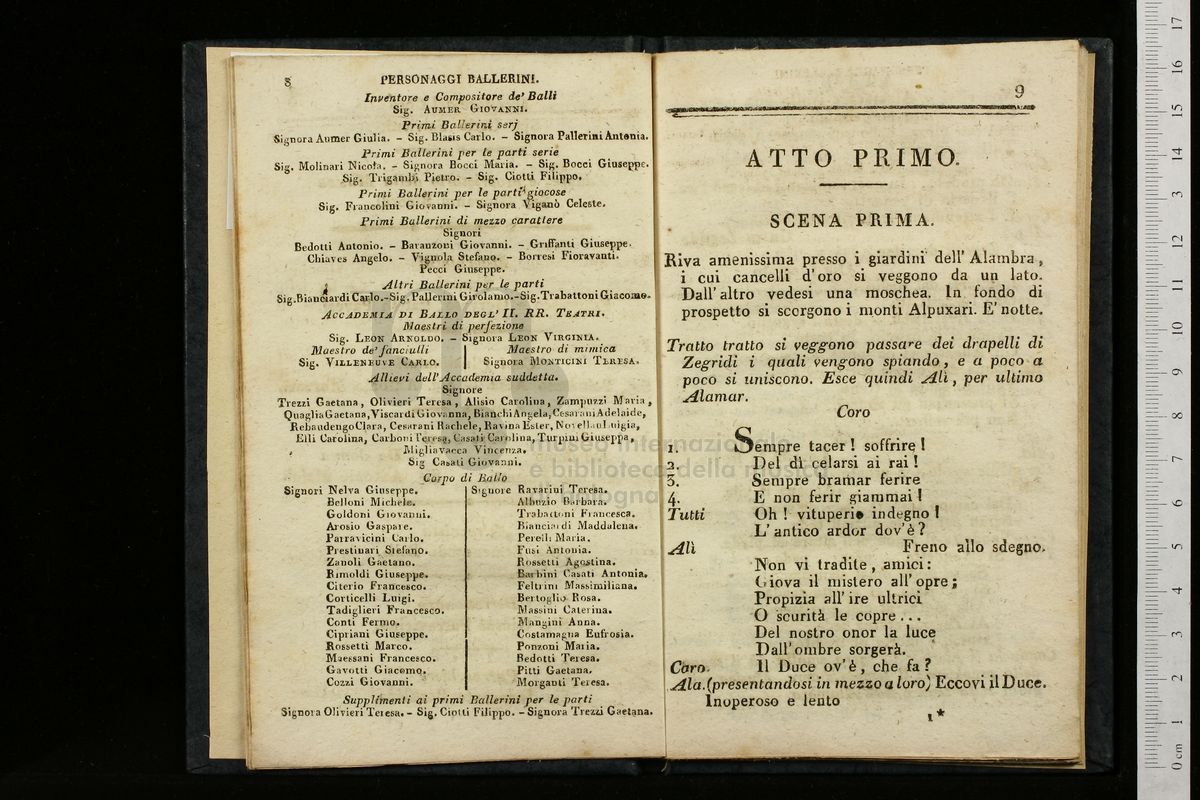 8
PERSONAGGI BALLERINI.
Inventore e Compositore de' Balli
Sig. AUMER GIOVANNI.
Primi Ballerini serj
Signora Aumer Giulia. – Sig. Blasis Carlo. – Signora Pallerini Antonia.
Primi Ballerini per le parti serie
Sig. Molinari Nicola. – Signora Bocci Maria. – Sig. Bocci Giuseppe.
Sig. Trigambi Pietro. – Sig. Ciotti Filippo.
Primi Ballerini per le parti giocose
Sig. Francolini Giovanni. – Signora Viganò Celeste.
Primi Ballerini di mezzo carattere
Signori
Bedotti Antonio. – Baranzoni Giovanni. – Griffanti Giuseppe.
Chiaves Angelo. – Vignola Stefano. – Borresi Fioravanti.
Pecci Giuseppe.
Altri Ballerini per le parti
Sig. Bianciardi Carlo.-Sig. Pallerini Girolamo.-Sig. Trabattoni Giacomo.
ACCADEMIA DI BALLO DEGL' II. RR. TEATRI.
Maestri di perfezione
Sig. LEON ARNOLDO. – Signora LEON VIRGINIA.
Maestro de' fanciulli
Sig. VILLENEUVE CARLO.
Maestro di mimica
Signora MONTICINI TERESA.
Allievi dell'Accademia suddetta.
Signore
Trezzi Gaetana, Olivieri Teresa, Alisio Carolina, Zampuzzi Maria,
Quaglia Gaetana, Viscardi Giovanna, Bianchi Angela, Cesarani Adelaide,
Rebaudengo Clara, Cesarani Rachele, Ravina Ester, Novellau Luigia,
Elli Carolina, Carboni Teresa, Casati Carolina, Turpini Giuseppa,
Migliavacca Vincenza.
Sig Casati Giovanni.
Corpo di Ballo
Signori Nelva Giuseppe.
Belloni Michele.
Goldoni Giovanni.
Arosio Gaspare.
Parravicini Carlo.
Prestinari Stefano.
Zanoli Gaetano.
Rimoldi Giuseppe.
Citerio Francesco.
Corticelli Luigi.
Tadiglieri Francesco.
Conti Fermo.
Cipriani Giuseppe.
Rossetti Marco.
Maessani Francesco.
Gavotti Giacomo.
Cozzi Giovanni.
Signore Ravarini Teresa.
Albuzio Barbara.
Trabattoni Francesca.
Bianciardi Maddalena.
Perelli Maria.
Fusi Antonia.
Rossetti Agostina.
Barbini Casati Antonia.
Feltrini Massimiliana.
Bertoglio Rosa.
Massini Caterina.
Mangini Anna.
Costamagna Eufrosia.
Ponzoni Maria.
Bedotti Teresa.
Pitti Gaetana.
Morganti Teresa.
Supplimenti ai primi Ballerini per le parti
Signora Olivieri Teresa. – Sig. Ciotti Filippo. – Signora Trezzi Gaetana.
9
ATTO PRIMO.
SCENA PRIMA.
Riva amenissima presso i giardini dell' Alambra,
i cui cancelli d'oro si veggono da un lato.
Dall' altro vedesi una moschea. In fondo di
prospetto si scorgono i monti Alpuxari. E' notte.
Tratto tratto si veggono passare dei drapelli di
Zegridi i quali vengono spiando, e a poco a
poco si uniscono. Esce quindi Alì, per ultimo
Alamar.
Coro
1. Sempre tacer! soffrire!
2. Del dì celarsi ai rai!
3. Sempre bramar ferire
4. E non ferir giammai!
Tutti Oh! vituperio indegno!
L' antico ardor dov'è?
Alì Freno allo sdegno.
Non vi tradite, amici:
Giova il mistero all' opre;
Propizia all' ire ultrici
O scurità le copre...
Del nostro onor la luce
Dall' ombre sorgerà.
Coro. Il Duce ov'è, che fa?
Ala. (presentandosi in mezzo a loro) Eccovi il Duce.
Inoperoso e lento
1*
museo internazionale
e biblioteca della musica
di bologna
0 cm 1 2 3 4 5 6 7 8 9 10 11 12 13 14 15 16 17